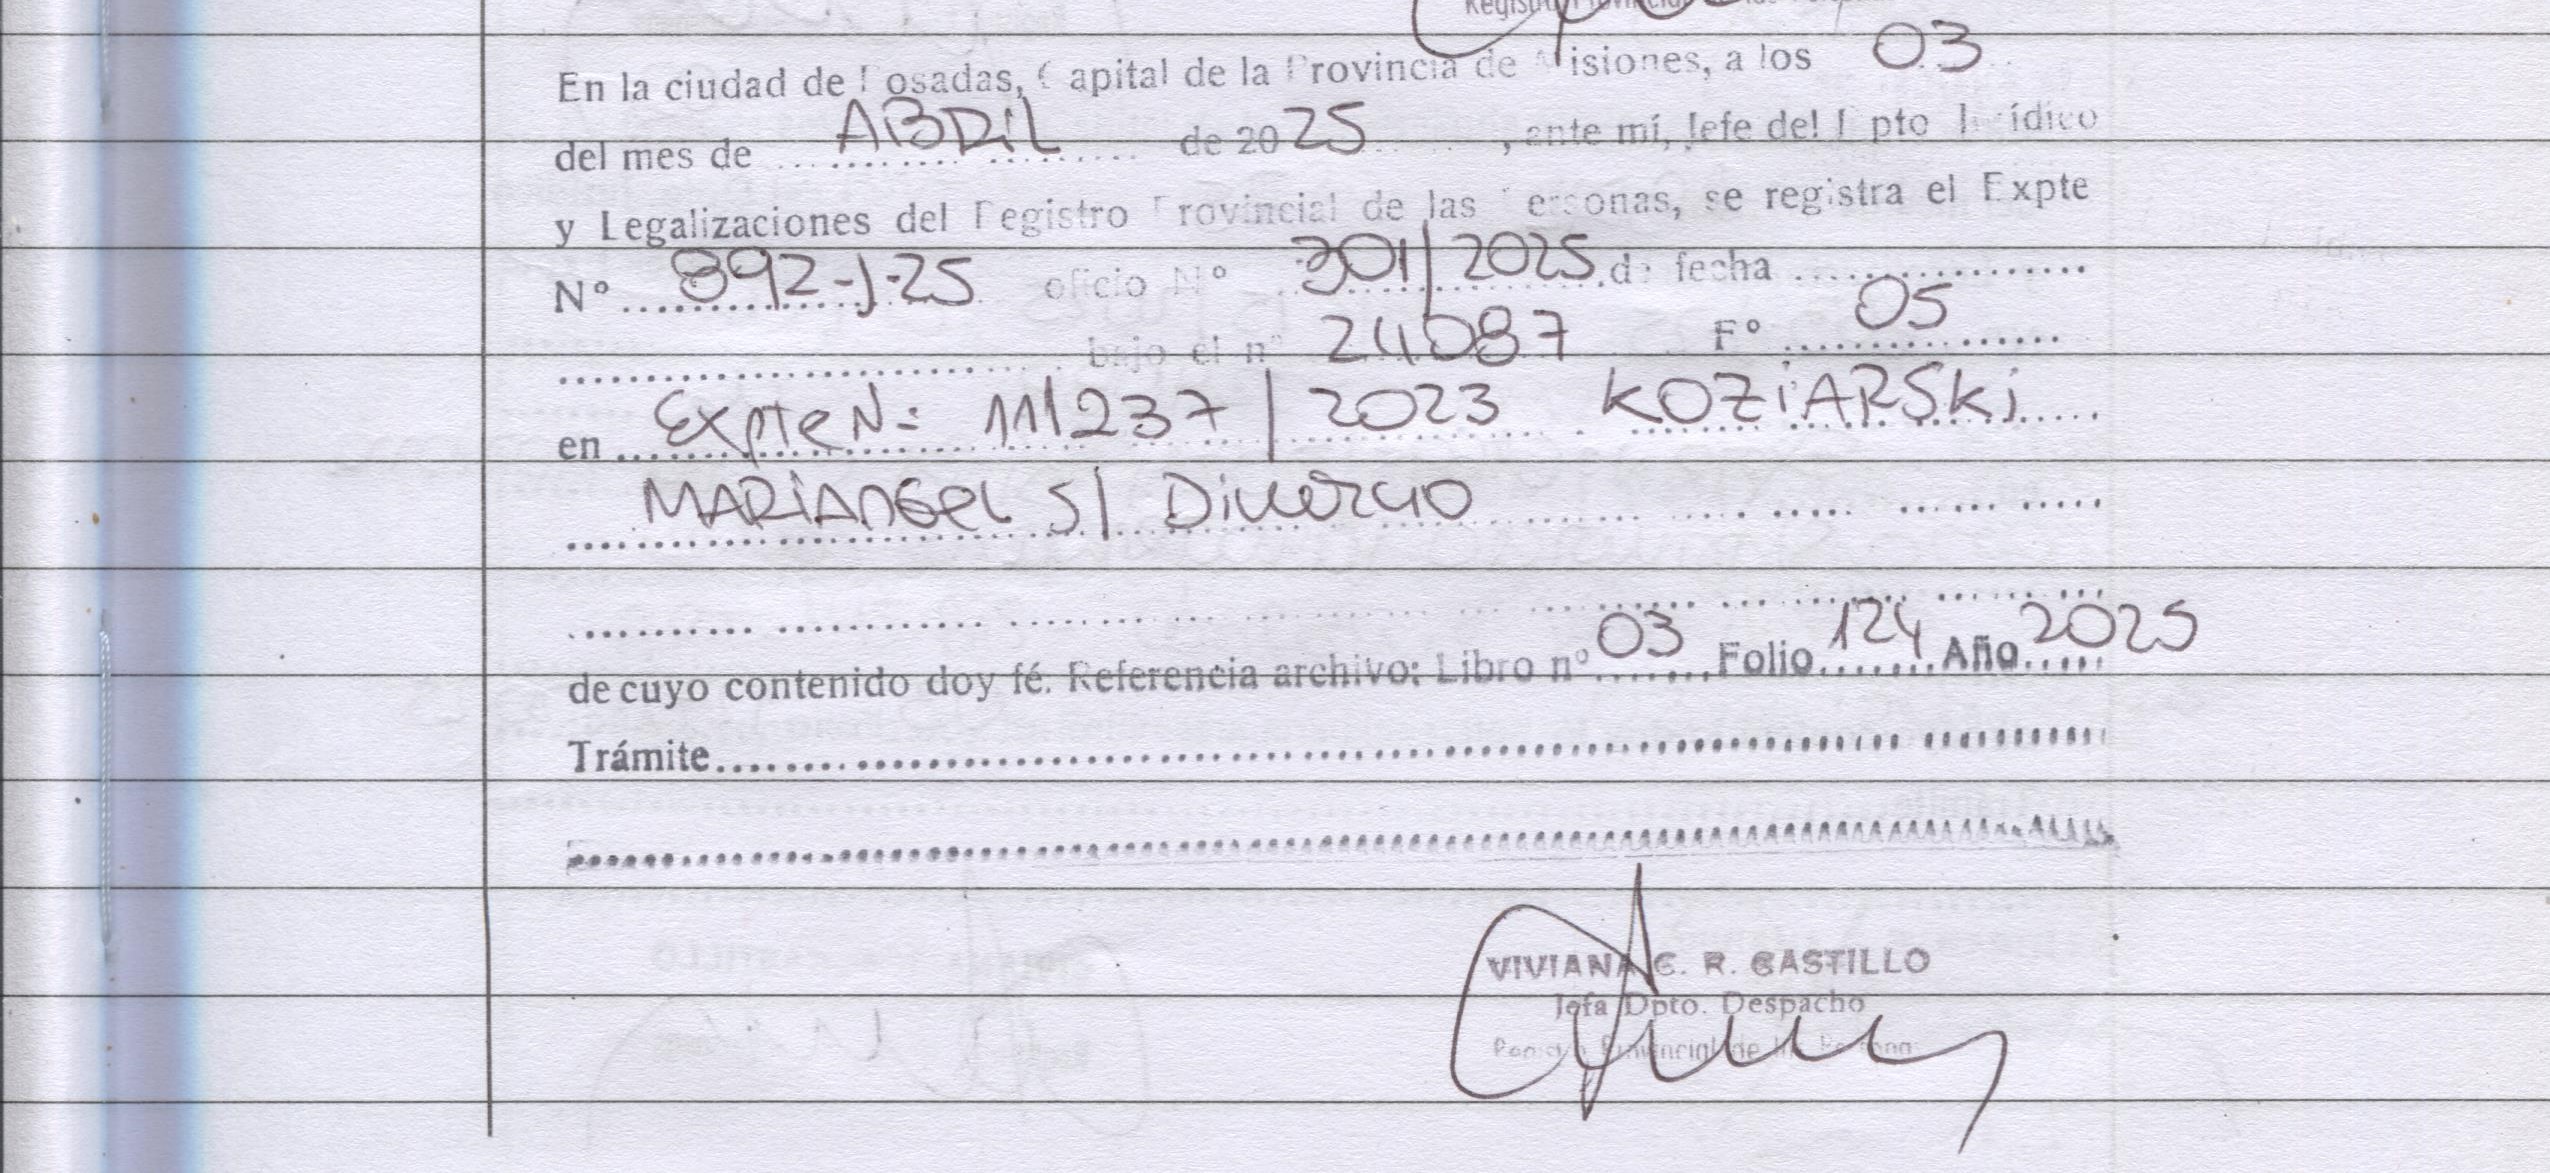 Registro Provincial de las Personas
En la ciudad de Posadas, Capital de la Provincia de Misiones, a los 03
del mes de ABRIL de 2025, ante mí, Jefe del Dpto Jurídico
y Legalizaciones del Registro Provincial de las Personas, se registra el Expte
N° 892-J-25 oficio N° 301/2025 de fecha
bajo el n° 24087 F° 05
en Expte N= 111237/2023 KOZiARSKi
MARiAnGeL S/ Divorcio
de cuyo contenido doy fé. Referencia archivo: Libro n° 03 Folio 124 Año 2025
Trámite
VIVIANA C. R. CASTILLO
Jefa Dpto. Despacho
Registro Provincial de las Personas